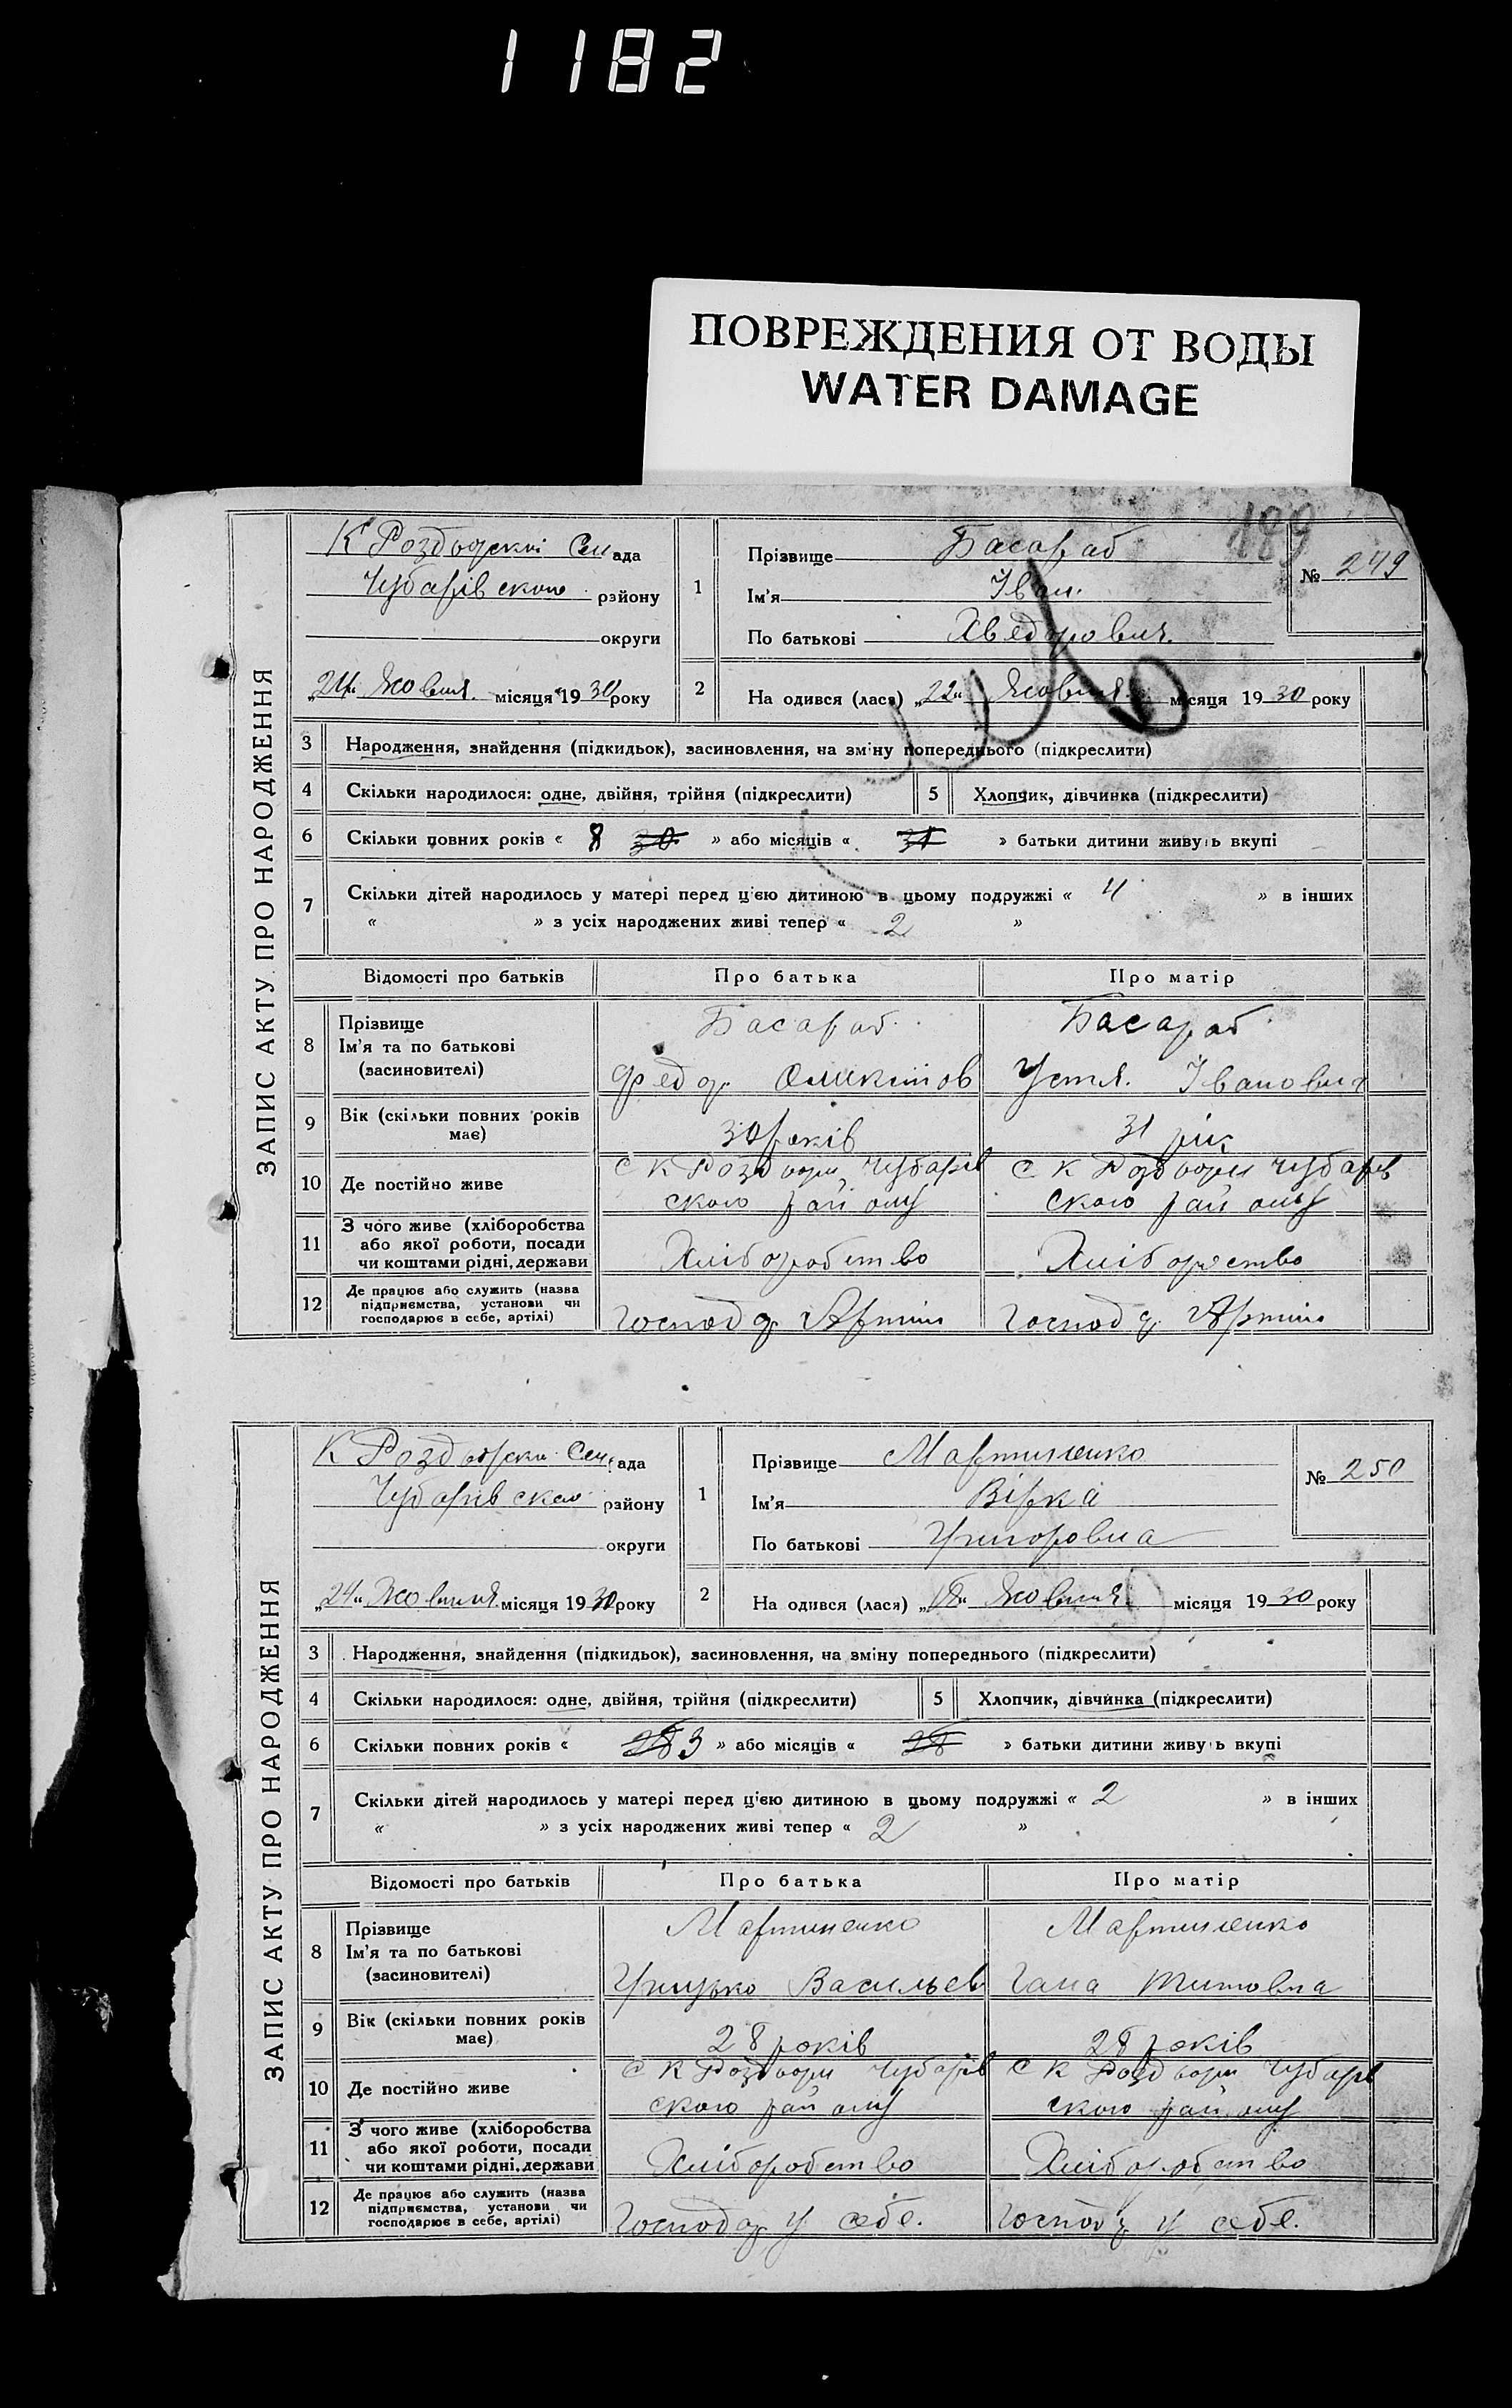 1182
ПОВРЕЖДЕНИЯ ОТ ВОДЫ
WATER DAMAGE
189
ЗАПИС АКТУ ПРО НАРОДЖЕННЯ
К Роздорскій Сельрада
Чубарівского району
округи
„24“ Жовтня місяця 1930 року
1
Прізвище Басараб
Ім'я Іван
По батькові Хведорович.
№ 249
2 На одився (лася) „22“ Жовтня місяця 1930 року
3 Народження, знайдення (підкидьок), засиновлення, на зміну попереднього (підкреслити)
4 Скільки народилося: одне, двійня, трійня (підкреслити) 5 Хлопчик, дівчинка (підкреслити)
6 Скільки повних років « 8 30 » або місяців « 31 » батьки дитини живуть вкупі
7 Скільки дітей народилось у матері перед цією дитиною в цьому подружжі « 4 » в інших
« » з усіх народжених живі тепер « 2 »
Відомості про батьків Про батька Про матір
8 Прізвище Ім'я та по батькові (засиновителі)
Басараб Басараб
Федор Устя Іванович
9 Вік (скільки повних років має) 30 років 31 рік
10 Де постійно живе
С К Роздори Чубарів С К Роздори Чубарів
ского району ского району
11 З чого живе (хліборобства або якої роботи, посади чи коштами рідні, держави
Хліборобство Хліборство
12 Де працює або служить (назва підприємства, установи чи господарює в себе, артілі)
Господар Артіли Господар Артіли
ЗАПИС АКТУ ПРО НАРОДЖЕННЯ
К Роздорски Сельрада
Чубарівского району
округи
„24“ Жовтня місяця 1930 року
1
Прізвище Мартиненко
Ім'я Вірка
По батькові Григоровна
№ 250
2 На одився (лася) „18“ Жовтня місяця 1930 року
3 Народження, знайдення (підкидьок), засиновлення, на зміну попереднього (підкреслити)
4 Скільки народилося: одне, двійня, трійня (підкреслити) 5 Хлопчик, дівчинка (підкреслити)
6 Скільки повних років « 28 3 » або місяців « 28 » батьки дитини живуть вкупі
7 Скільки дітей народилось у матері перед цією дитиною в цьому подружжі « 2 » в інших
« » з усіх народжених живі тепер « 2 »
Відомості про батьків Про батька Про матір
8 Прізвище Ім'я та по батькові (засиновителі)
Мартиненко Мартиненко
Грицько Васильев Гана Титовна
9 Вік (скільки повних років має) 28 років 28 років
10 Де постійно живе
С К Роздори Чубарів С К Роздори Чубарів
ского району ского району
11 З чого живе (хліборобства або якої роботи, посади чи коштами рідні, держави
Хліборобство Хліборобство
12 Де працює або служить (назва підприємства, установи чи господарює в себе, артілі)
Господар у себе. Господар у себе.